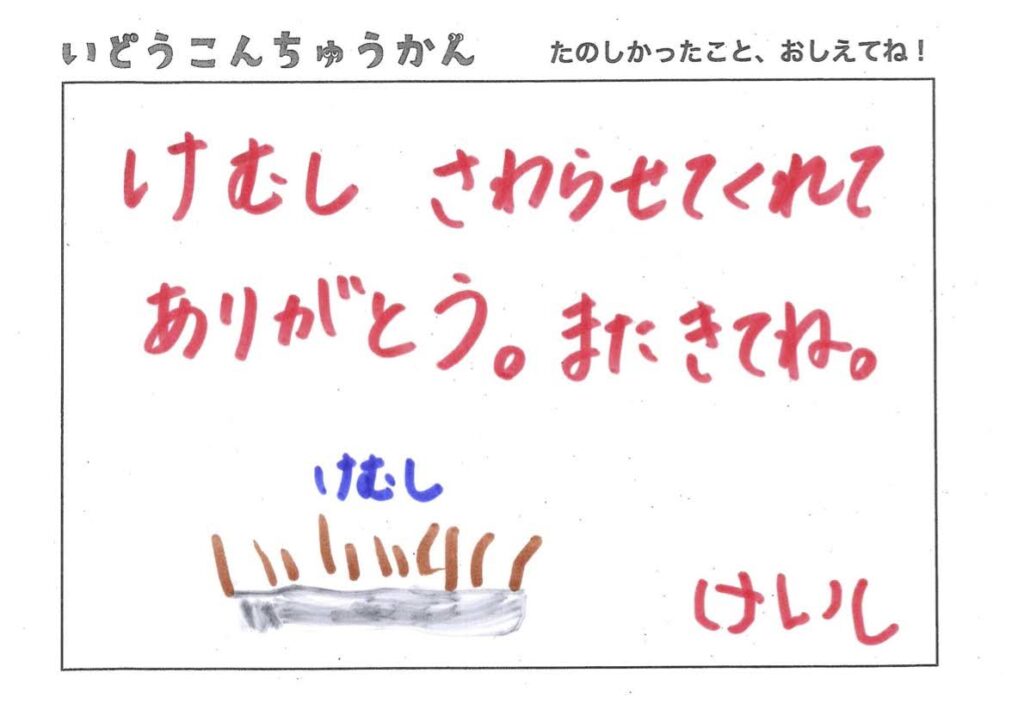 いどうこんちゅうかん たのしかったこと、おしえてね！
けむし さわらせてくれて
ありがとう。またきてね。
けむし
けいし